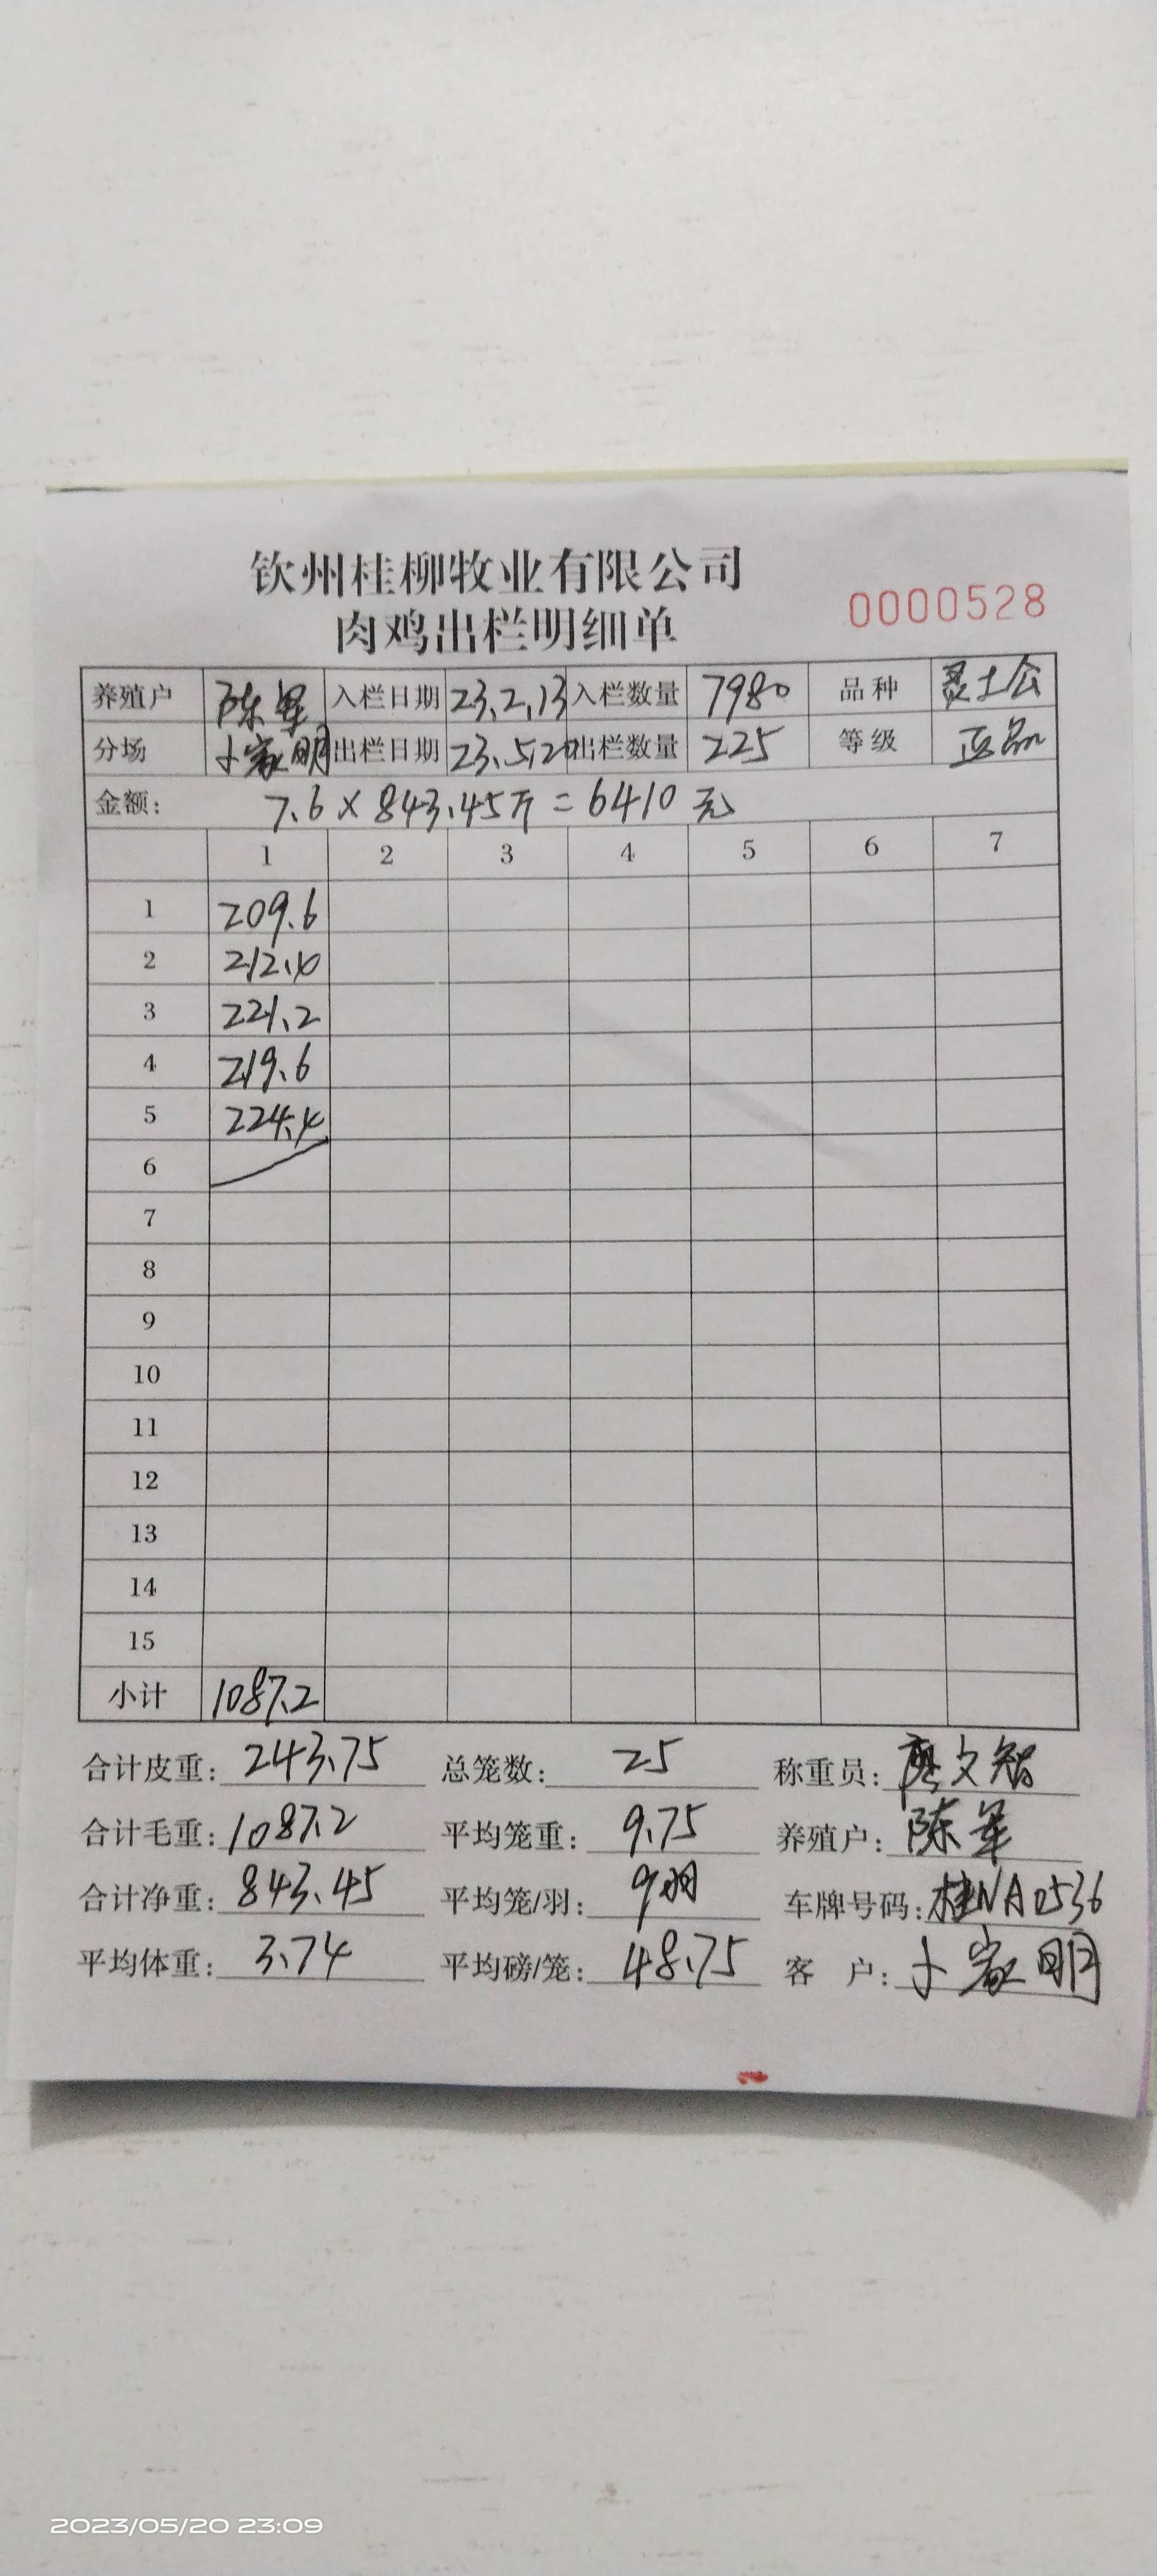 钦州桂柳牧业有限公司
肉鸡出栏明细单
0000528
养殖户 陈军 入栏日期 23.2.13 入栏数量 7980 品种 灵土公
分场 卜家明 出栏日期 23.5.20 出栏数量 225 等级 正品
金额: 7.6×843.45斤=6410元
1 2 3 4 5 6 7
1 209.6
2 212.4
3 221.2
4 219.6
5 224.4
6
7
8
9
10
11
12
13
14
15
小计 1087.2
合计皮重: 243.75 总笼数: 25 称重员: 廖文智
合计毛重: 1087.2 平均笼重: 9.75 养殖户: 陈军
合计净重: 843.45 平均笼/羽: 9羽 车牌号码: 桂NA0536
平均体重: 3.74 平均磅/笼: 48.75 客 户: 卜家明
2023/05/20 23:09